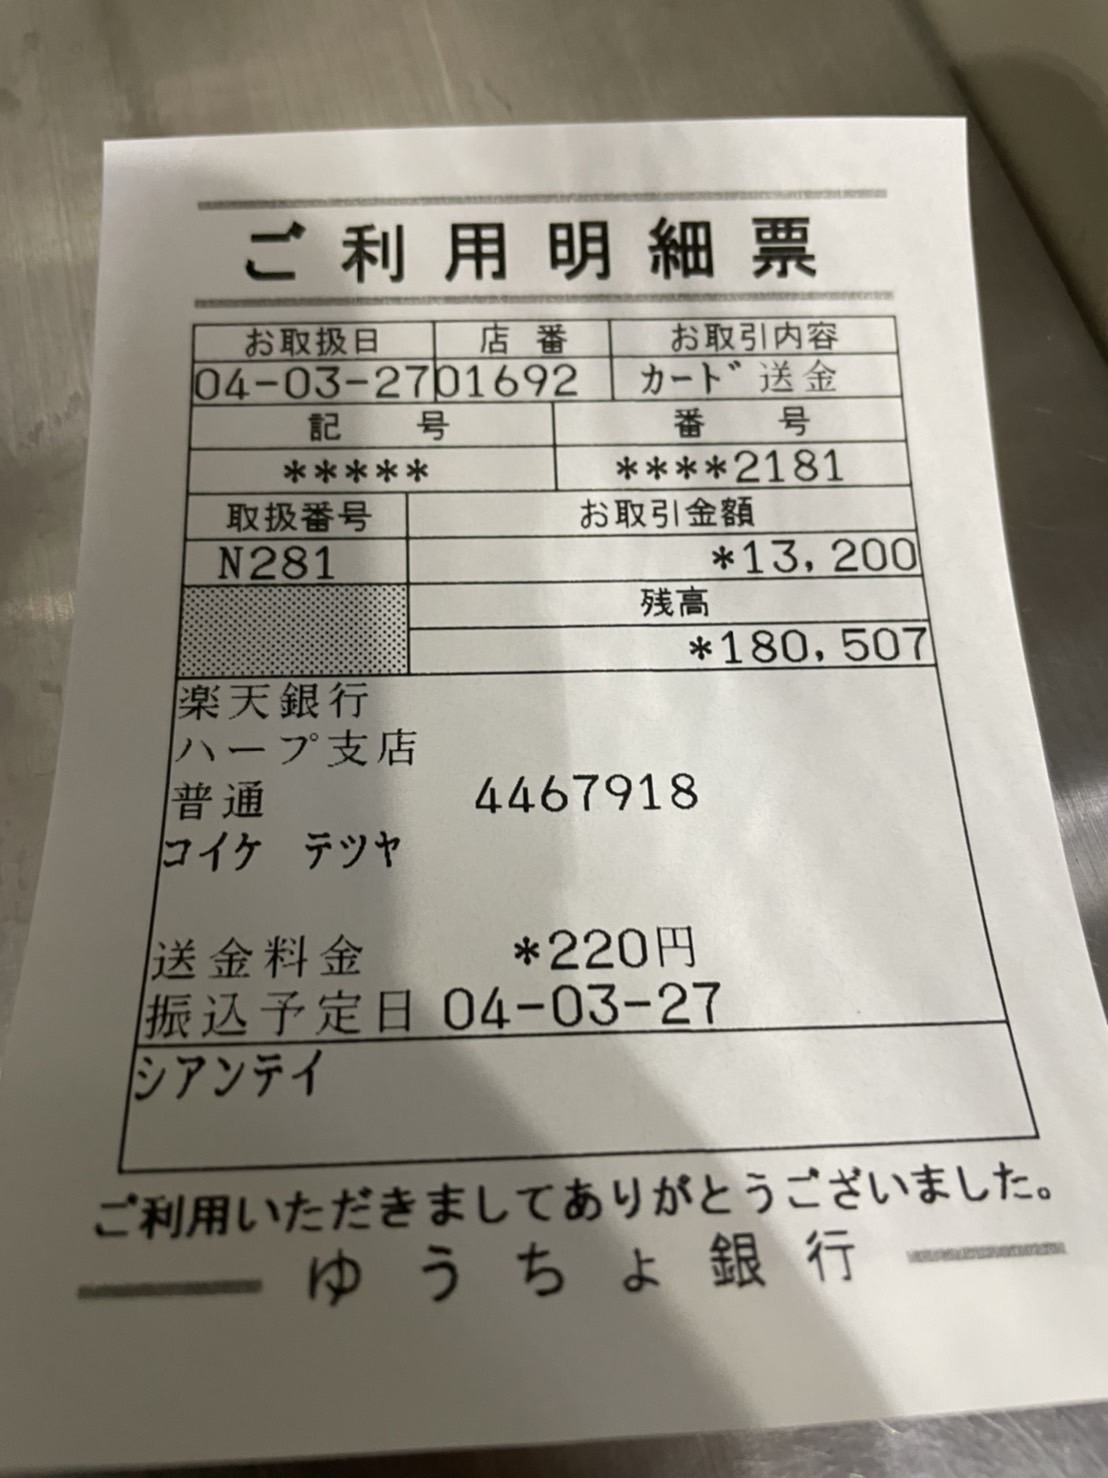 ご利用明細票
お取扱日 店番 お取引内容
04-03-27 01692 カード送金
記号 番号
***** ****2181
取扱番号 お取引金額
N281 *13,200
残高
*180,507
楽天銀行
ハープ支店
普通 4467918
コイケ テツヤ
送金料金 *220円
振込予定日 04-03-27
シアンテイ
ご利用いただきましてありがとうございました。
ゆうちょ銀行